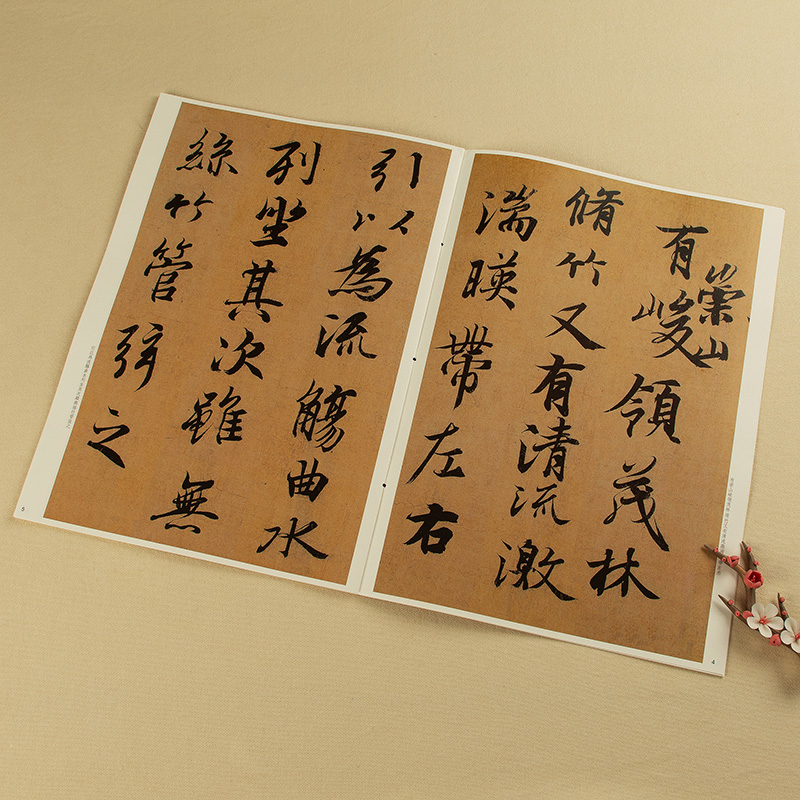 有崇山峻領茂林
脩竹又有清流激
湍暎帶左右
引以為流觴曲水
列坐其次雖無
絲竹管弦之
4
5